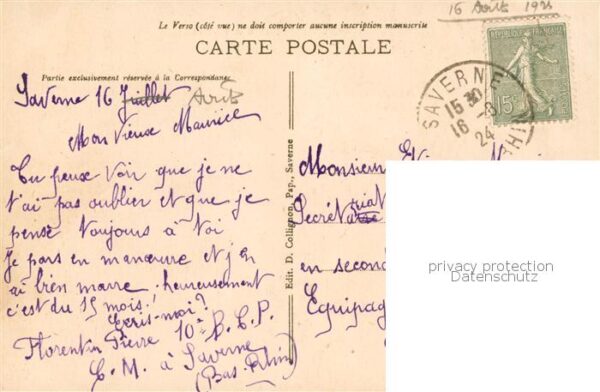 16 Août 192
Le Verso (côté vue) ne doit comporter aucune inscription manuscrite
CARTE POSTALE
Partie exclusivement réservée à la Correspondance
Saverne 16 Juillet Août
Mon Vieux Maurice
Tu peux voir que je ne
t'ai pas oublier et que je
pense toujours à toi
Je pars en manœuvre et j'en
ai bien marre. heureusement
c'est du 15 mois!
Ecris-moi?
Florentin Pierre 10e B.C.P.
C.M. à Saverne
(Bas-Rhin)
Edit. D. Collignon, Pap., Saverne
REPUBLIQUE FRANÇAISE
15c
SAVERNE
15 30
16 -8
24
RHIN
Monsieur
Secrétariat
en second
Equipag
privacy protection
Datenschutz